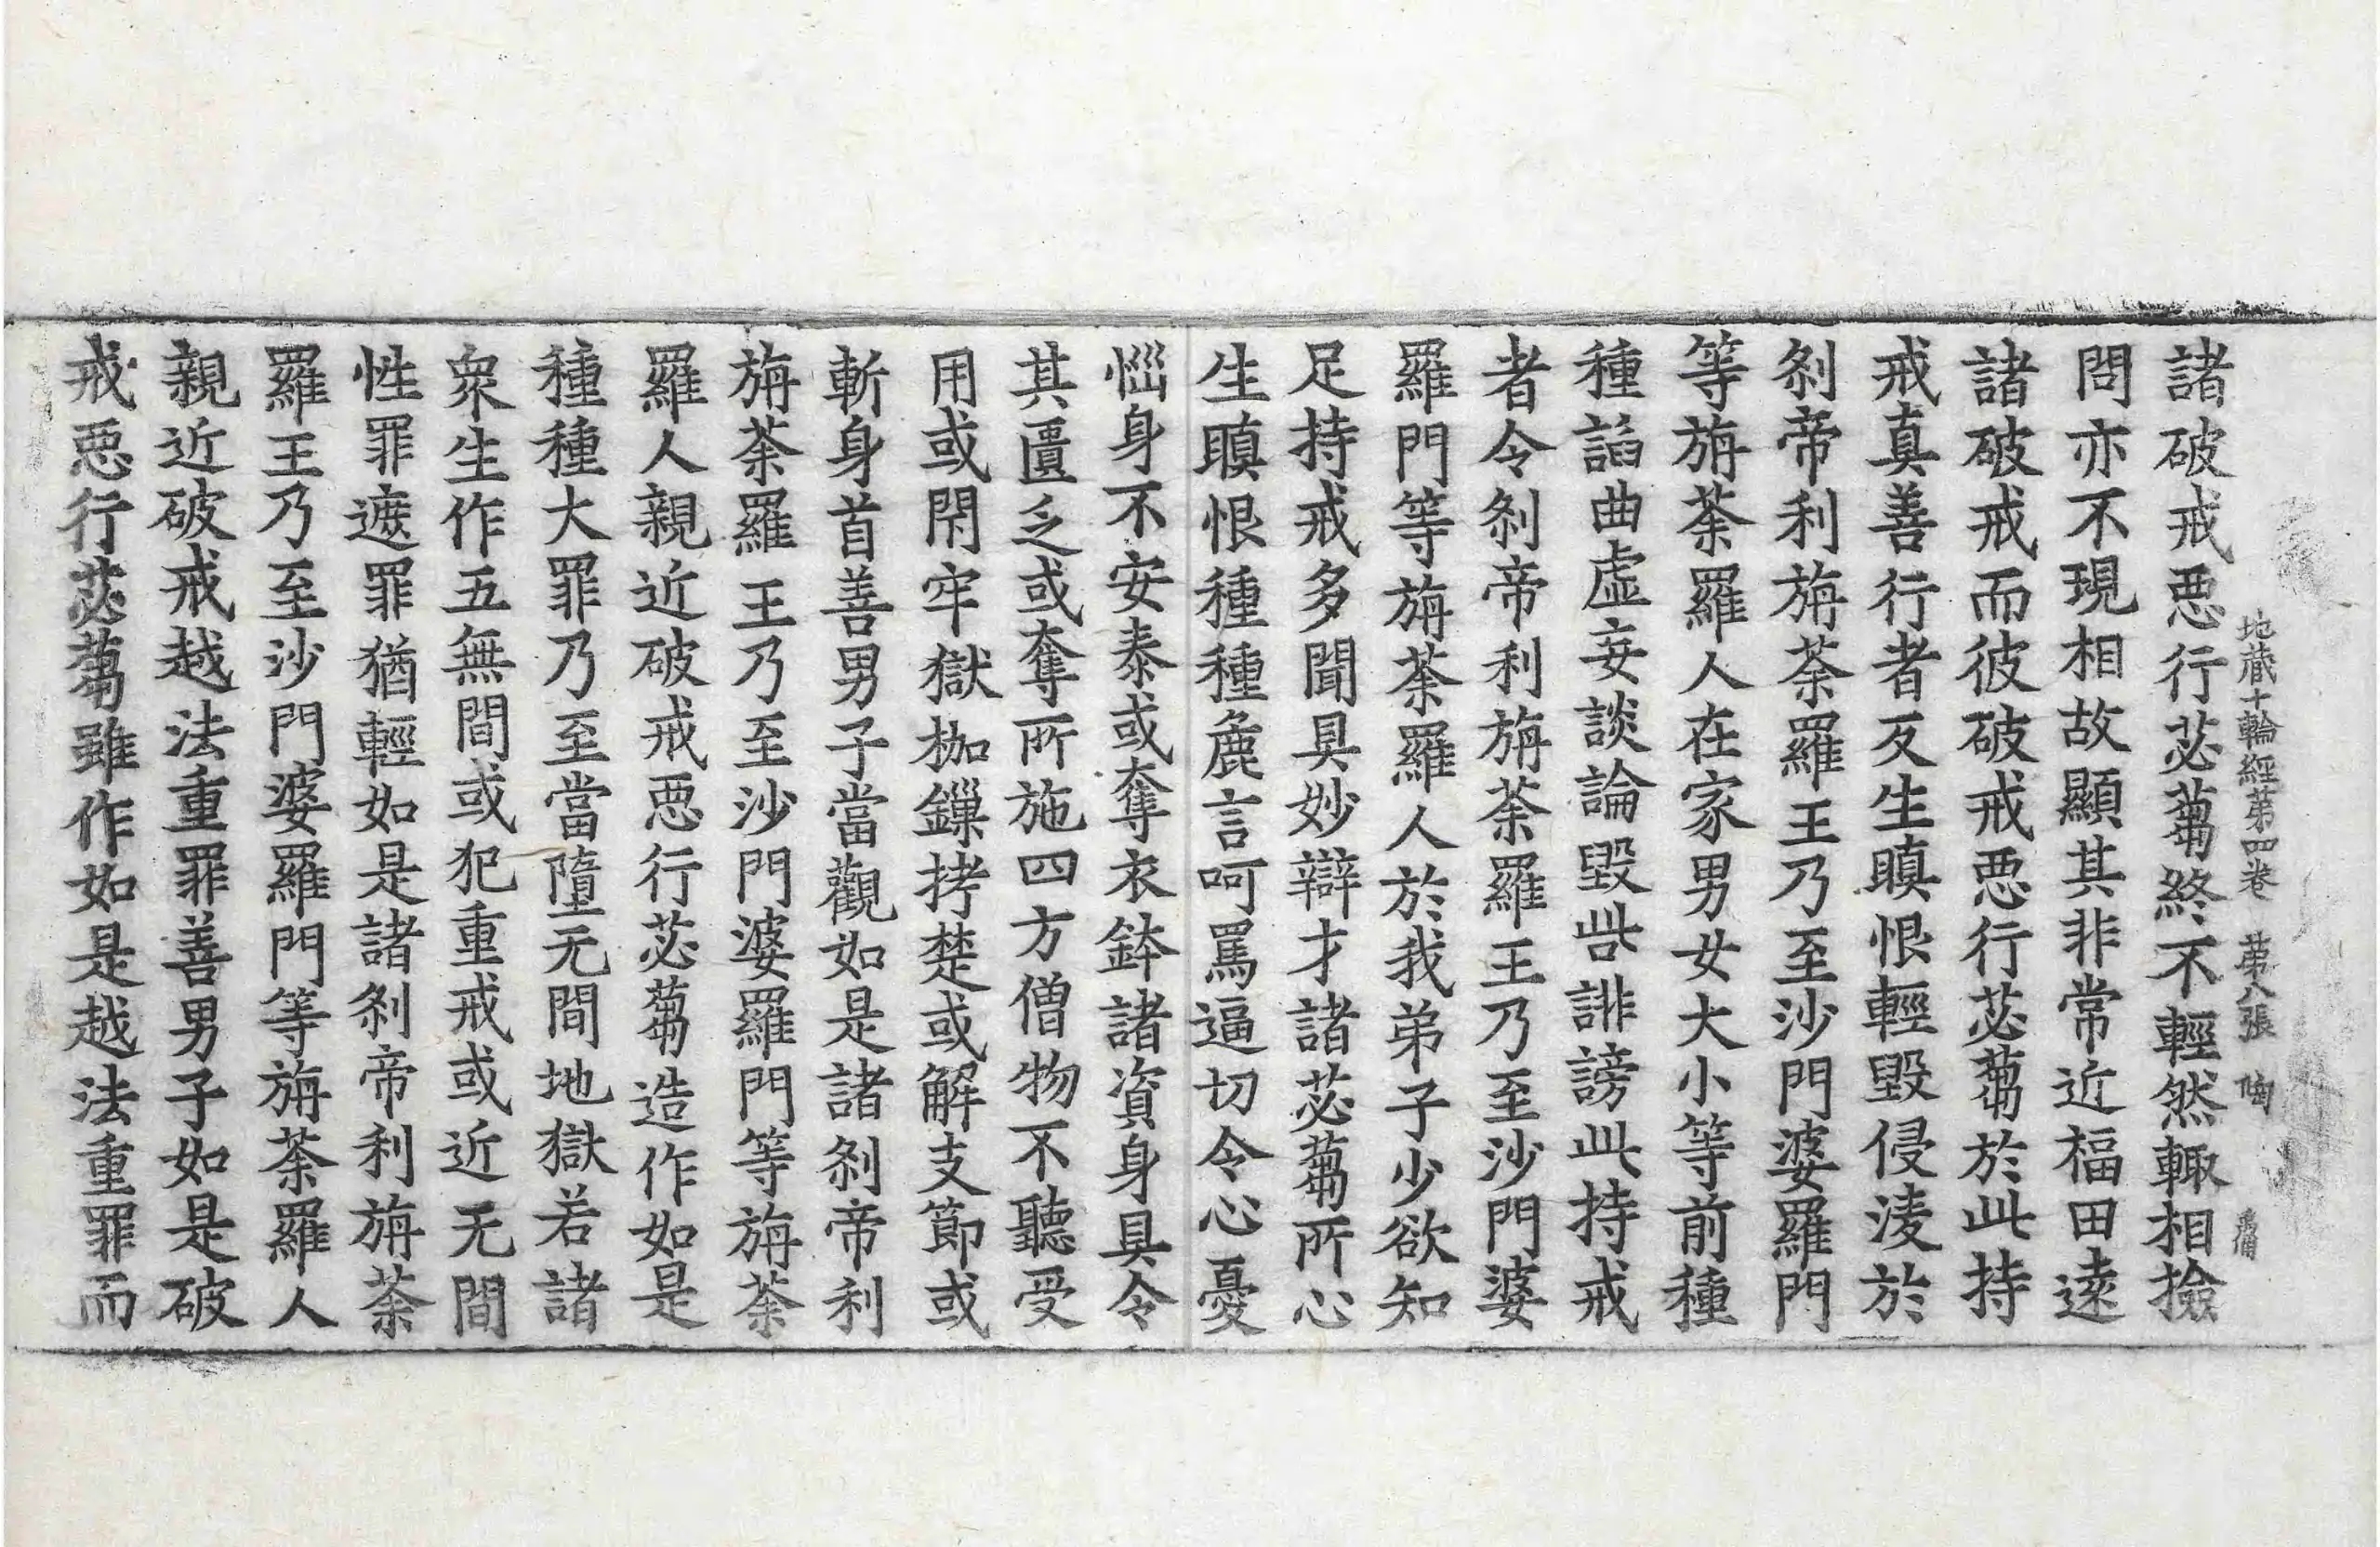 地藏十輪經第四卷 第八張 陶
諸破戒惡行苾蒭終不輕然輙相撿
問亦不現相故顯其非常近福田逺
諸破戒而彼破戒惡行苾蒭於此持
戒真善行者反生瞋恨輕毀侵淩於
剎帝利旃荼羅王乃至沙門婆羅門
等旃荼羅人在家男女大小等前種
種諂曲虛妄談論毀呰誹謗此持戒
者令剎帝利旃荼羅王乃至沙門婆
羅門等旃荼羅人於我弟子少欲知
足持戒多聞具妙辯才諸苾蒭所心
生瞋恨種種麁言呵罵逼切令心憂
惱身不安泰或奪衣鉢諸資身具令
其匱乏或奪所施四方僧物不聽受
用或閇牢獄枷鏁拷楚或解支節或
斬身首善男子當觀如是諸剎帝利
旃荼羅王乃至沙門婆羅門等旃荼
羅人親近破戒惡行苾蒭造作如是
種種大罪乃至當墮无間地獄若諸
衆生作五無間或犯重戒或近无間
性罪遮罪猶輕如是諸剎帝利旃荼
羅王乃至沙門婆羅門等旃荼羅人
親近破戒越法重罪善男子如是破
戒惡行苾蒭雖作如是越法重罪而